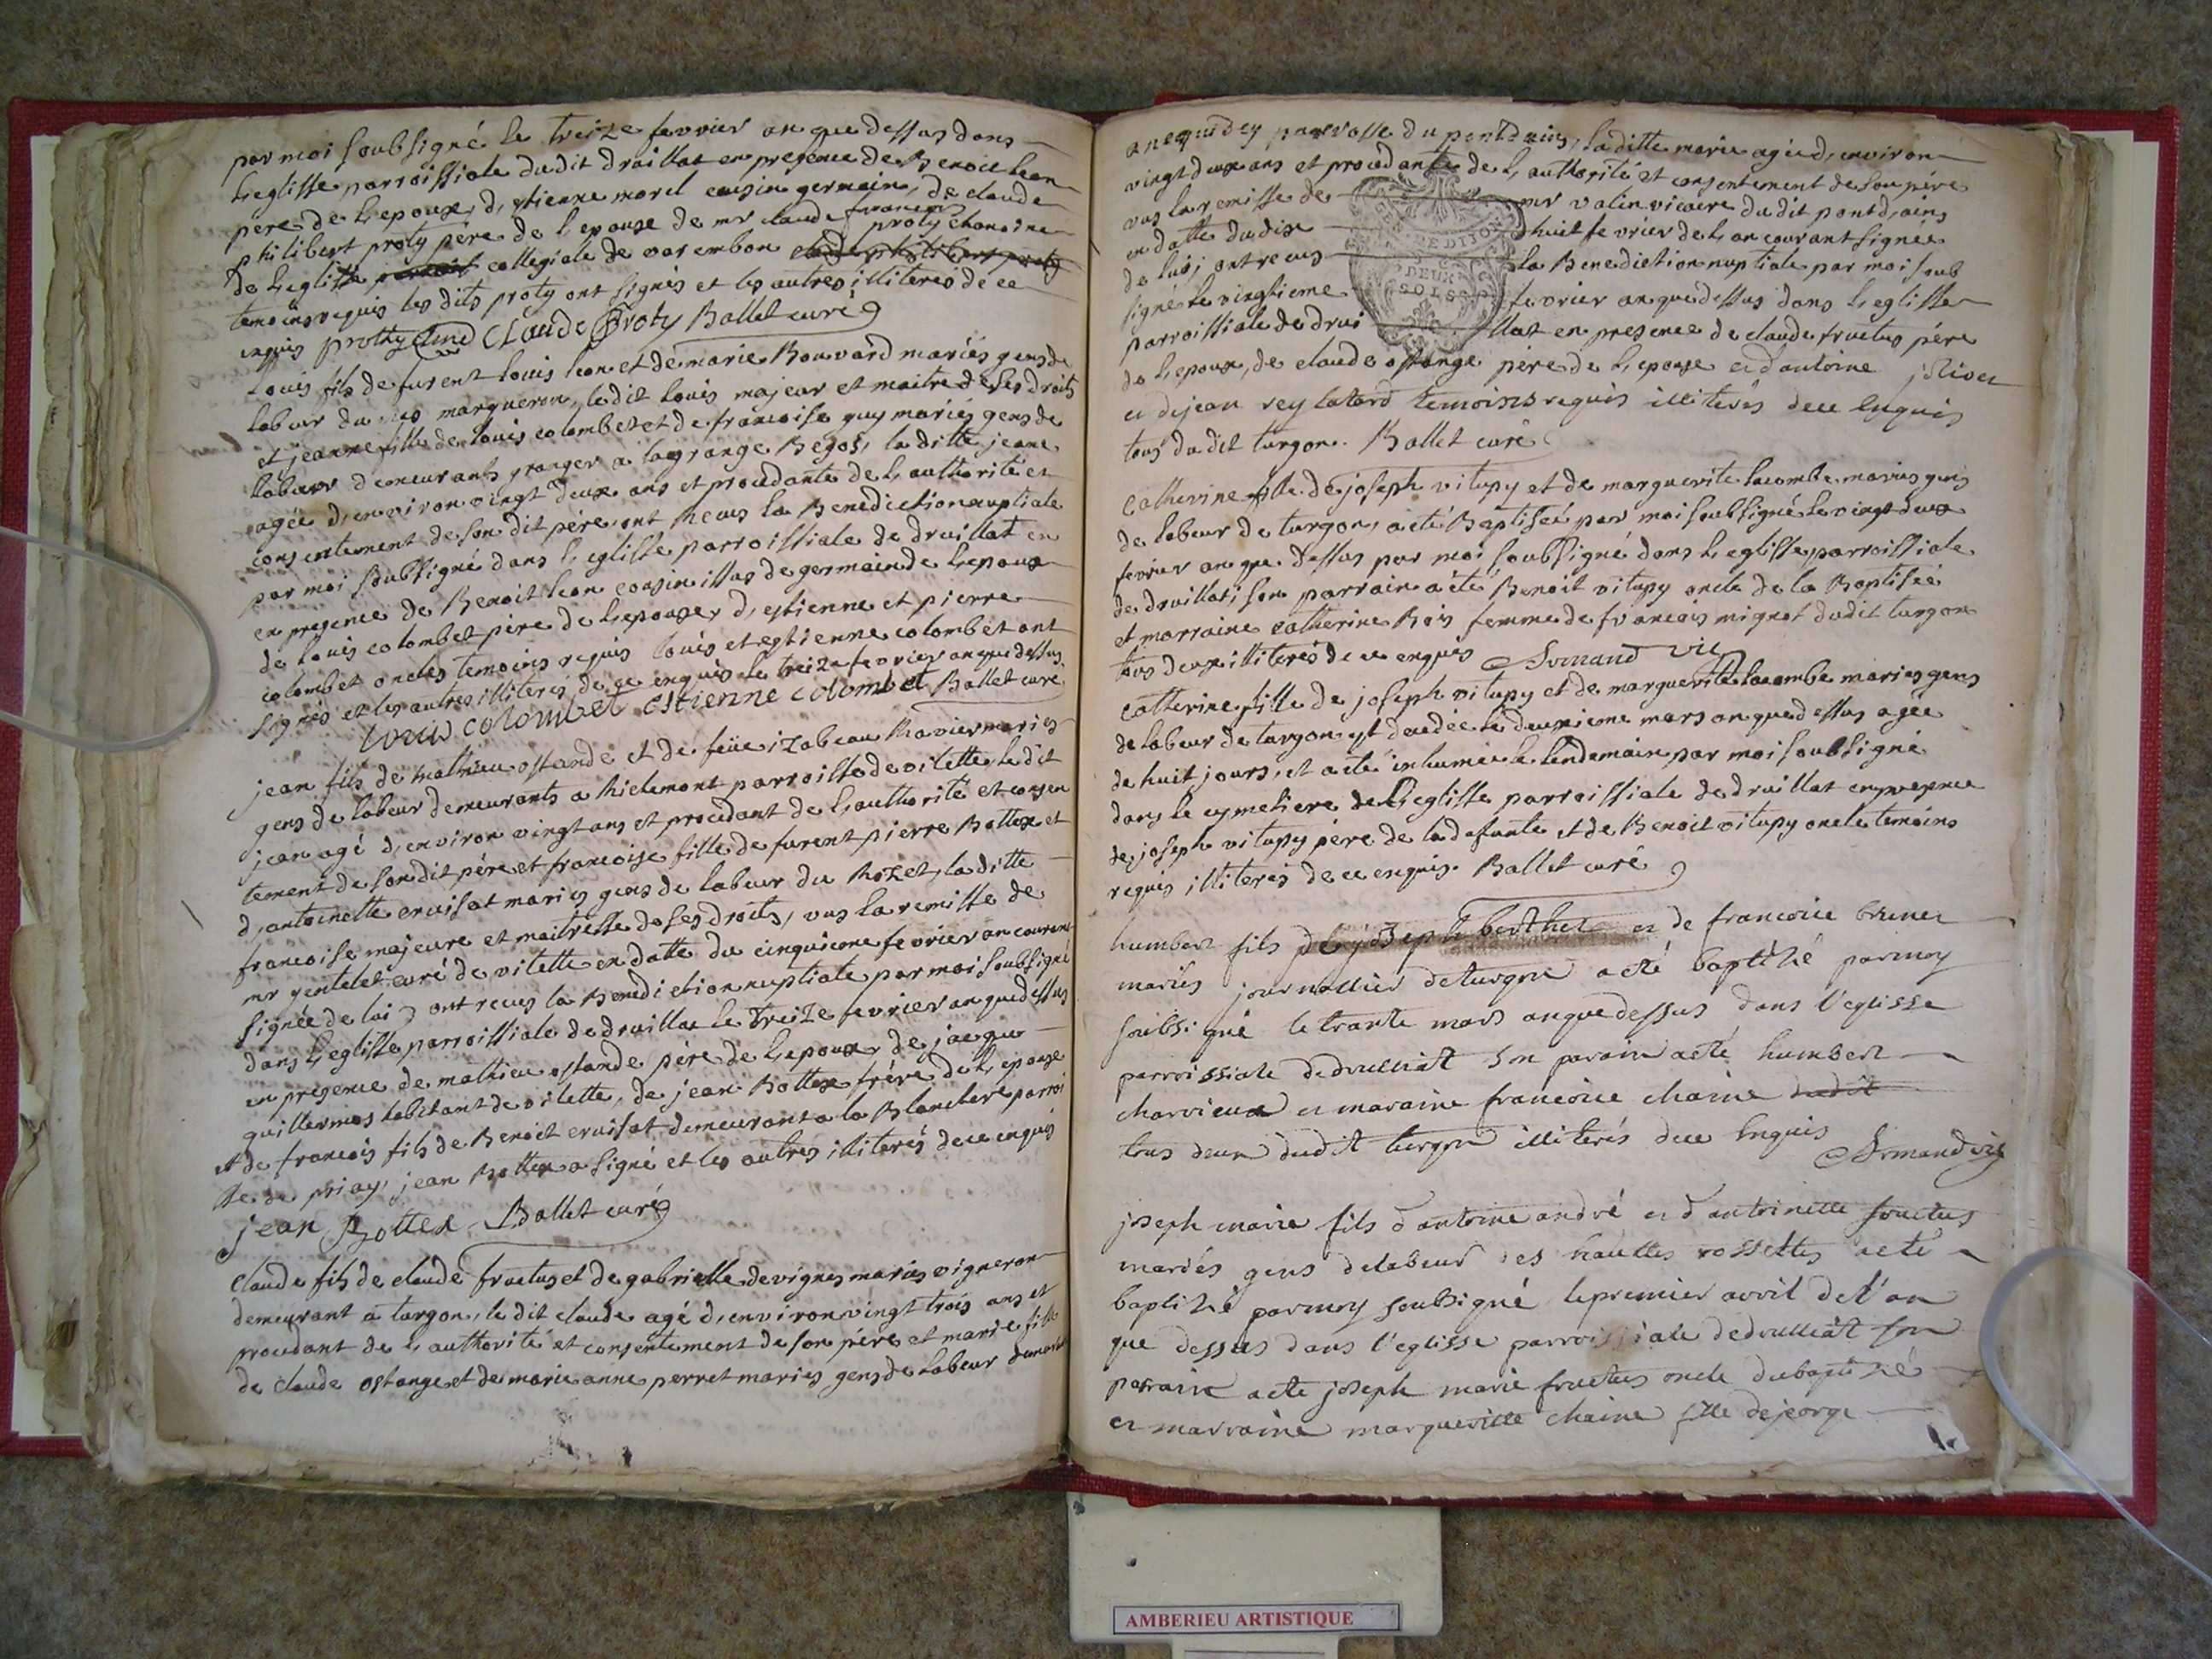 par moi soubsigné le treize fevvrier an que dessus dans
L eglisse parroissiale dudit druillat en presence de Benoit leon
père de L epoux, d, estienne morel cousin germain, de claude
philibert proty père de l epouse de mr claude francois proty chanoine
de L eglisse collegiale de varembon
temoins requis les dits proty ont signés et les autres illiterés de ce
enquis prothy Claude Proty Ballet curé
Louis fils de furent louis leon et de marie Bouvard mariés gens de
labeur du margueron, ledit louis majeur et maitre de ses droits
et jeanne fille de louis colombet et de francoise guy mariés gens de
labeur demeurants granger a lagrange Begos, la ditte jeane
agée d, environ vingt deux ans et procedante de L authorité et
consentement de son dit père, ont Recus la Benediction nuptiale
par moi soubsigné dans L eglisse parroissiale de druillat en
en presence de Benoit leon cousin issus de germain de L epoux
de louis colombet père de L epouse, d, estienne et pierre
colombet oncles temoins requis louis et estienne colombet ont
signés et les autres illiterés de ce enquis le treize fevrier an que dessus
louis colombet estienne colombet Ballet curé
jean fils de mathieu ostande et de feüe izabeau Ravier mariés
gens de labeur demeurants a Richemont parroisse de vilette, le dit
jean agé d, environ vingt ans et procedant de L authorité et consen
tement de son dit père et francoise fille de furent pierre Bottex et
d, antoinette cruisat mariés gens de labeur du Rozet, la ditte
francoise majeure et maitresse de ses droits, vus la remisse de
mr gentelet curé de vilette en datte du cinquieme fevrier an courant
signée de lui, ont recus la Benediction nuptiale par moi soubsigné
dans L eglisse parroissiale de druillat le treize fevrier an que dessus
en presence de mathieu ostande père de L epoux, de jacque
guillermos habitant de vilette, de jean Bottex frère de L epouse
et de francois fils de Benoit cruisat demeurant a la Blanchere parroi
sse de priay, jean Bottex a signé et les autres illiterés de ce enquis
jean Bottex Ballet curé
Claude fils de claude fructus et de gabrielle devignes mariés vigneron
demeurant a turgon, le dit claude agé d, environ vingt trois ans et
procedant de L authorité et consentement de son père et marie fille
de claude ostange et de marie anne perret mariés gens de labeur demeurant
parroisse du pont d'ains, la ditte marie agée d, environ
vingt deux ans et procedante de L authorité et consentement de son père
vus la remisse de mr valin vicaire du dit pont d, ains
en datte du dix huit fevrier de L an courant signée
de lui, ont recus la Benediction nuptiale par moi soub
signé le vingtieme fevrier an que dessus dans L eglisse
parroissiale de drui llat en presence de claude fructus père
de L epoux, de claude ostange père de L epouse et d'antoine joliver
et de jean rey latard temoins requis illiterés de ce enquis
tous du dit turgon. Ballet curé
Catherine fille de joseph vitupy et de marguerite lacombe mariés gens
de labeur de turgon, a été Baptisée par moi soubsigné le vingt deux
fevrier an que dessus par moi soubsigné dans L eglisse parroissiale
de druillat, son parrain a été Benoit vitupy oncle de la Baptisée
et marraine catherine Rois femme de francois mignot dudit turgon
tous deux illiterés de ce enquis Armand vic
Catterine fille de joseph vitupy et de marguerite lacombe mariés gens
de labeur de turgon est decedée le deuxieme mars an que dessus agée
de huit jours, et a été inhumée le lendemain par moi soubsigné
dans le cymetiere de L eglisse parroissiale de druillat en presence
de, joseph vitupy père de la defunte et de Benoit vitupy oncle temoins
requis illiterés de ce enquis. Ballet curé
humbert fils de joseph berthet et de francoise brunet
mariés journallier de turgon a été baptizé par moy
soubsigné le trante mars an que dessus dans l'eglisse
parroissiale de druilliat son parain a été humbert
charvieux et maraine francoise chaine dudit
tous deux dudit turgon illiterés de ce enquis Armand vic
joseph marie fils d antoine andré et d antoinette fructus
mariés gens de labeur des hauttes rossettes a eté
baptizé par moy soubsigné le premier avril de l'an
que dessus dans l'eglisse parroissiale de druilliat son
parrain a eté joseph marie fructus oncle du baptizé
et marraine margueritte chaine fille de jeorge
GEN DE DIJON
DEUX
SOLS
AMBERIEU ARTISTIQUE